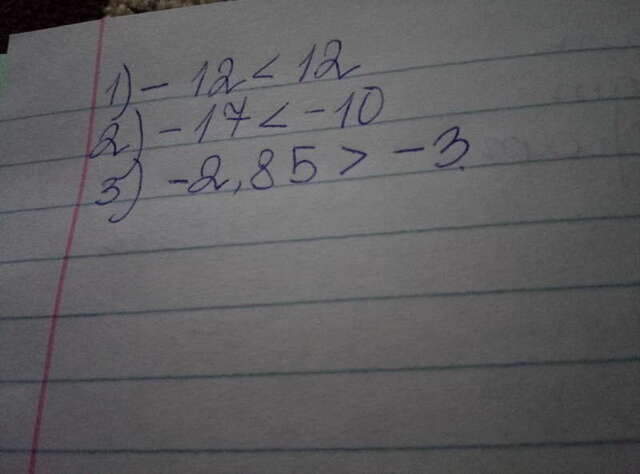 1) - 12 < 12
2) - 17 < -10
3) -2,85 > -3.